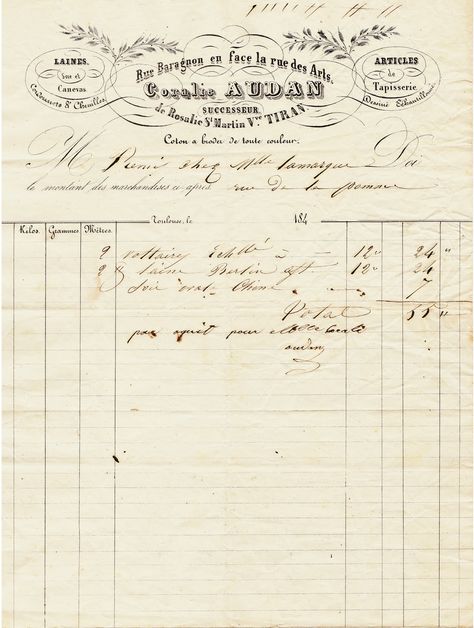 Rue Baragnon en face la rue des Arts.
LAINES,
Soie et
Canevas
Cordonnets & Chenilles.
Coralie AUDAN
SUCCESSEUR
de Rosalie St Martin Vve TIRAN
ARTICLES
de
Tapisserie,
Dessins Échantillonnés
Coton a broder de toute couleur.
M René chez Mlle Lamarque Doi
le montant des marchandises ci après rue de la pomme
Toulouse, le 184
Kilos. Grammes. Mètres.
2 voltaire Echllé à 12 24 "
2 " laine Berlin 12 24 "
Soie ovale Chine 7
Total 55 "
par aquit pour Mlle Coralie
audan